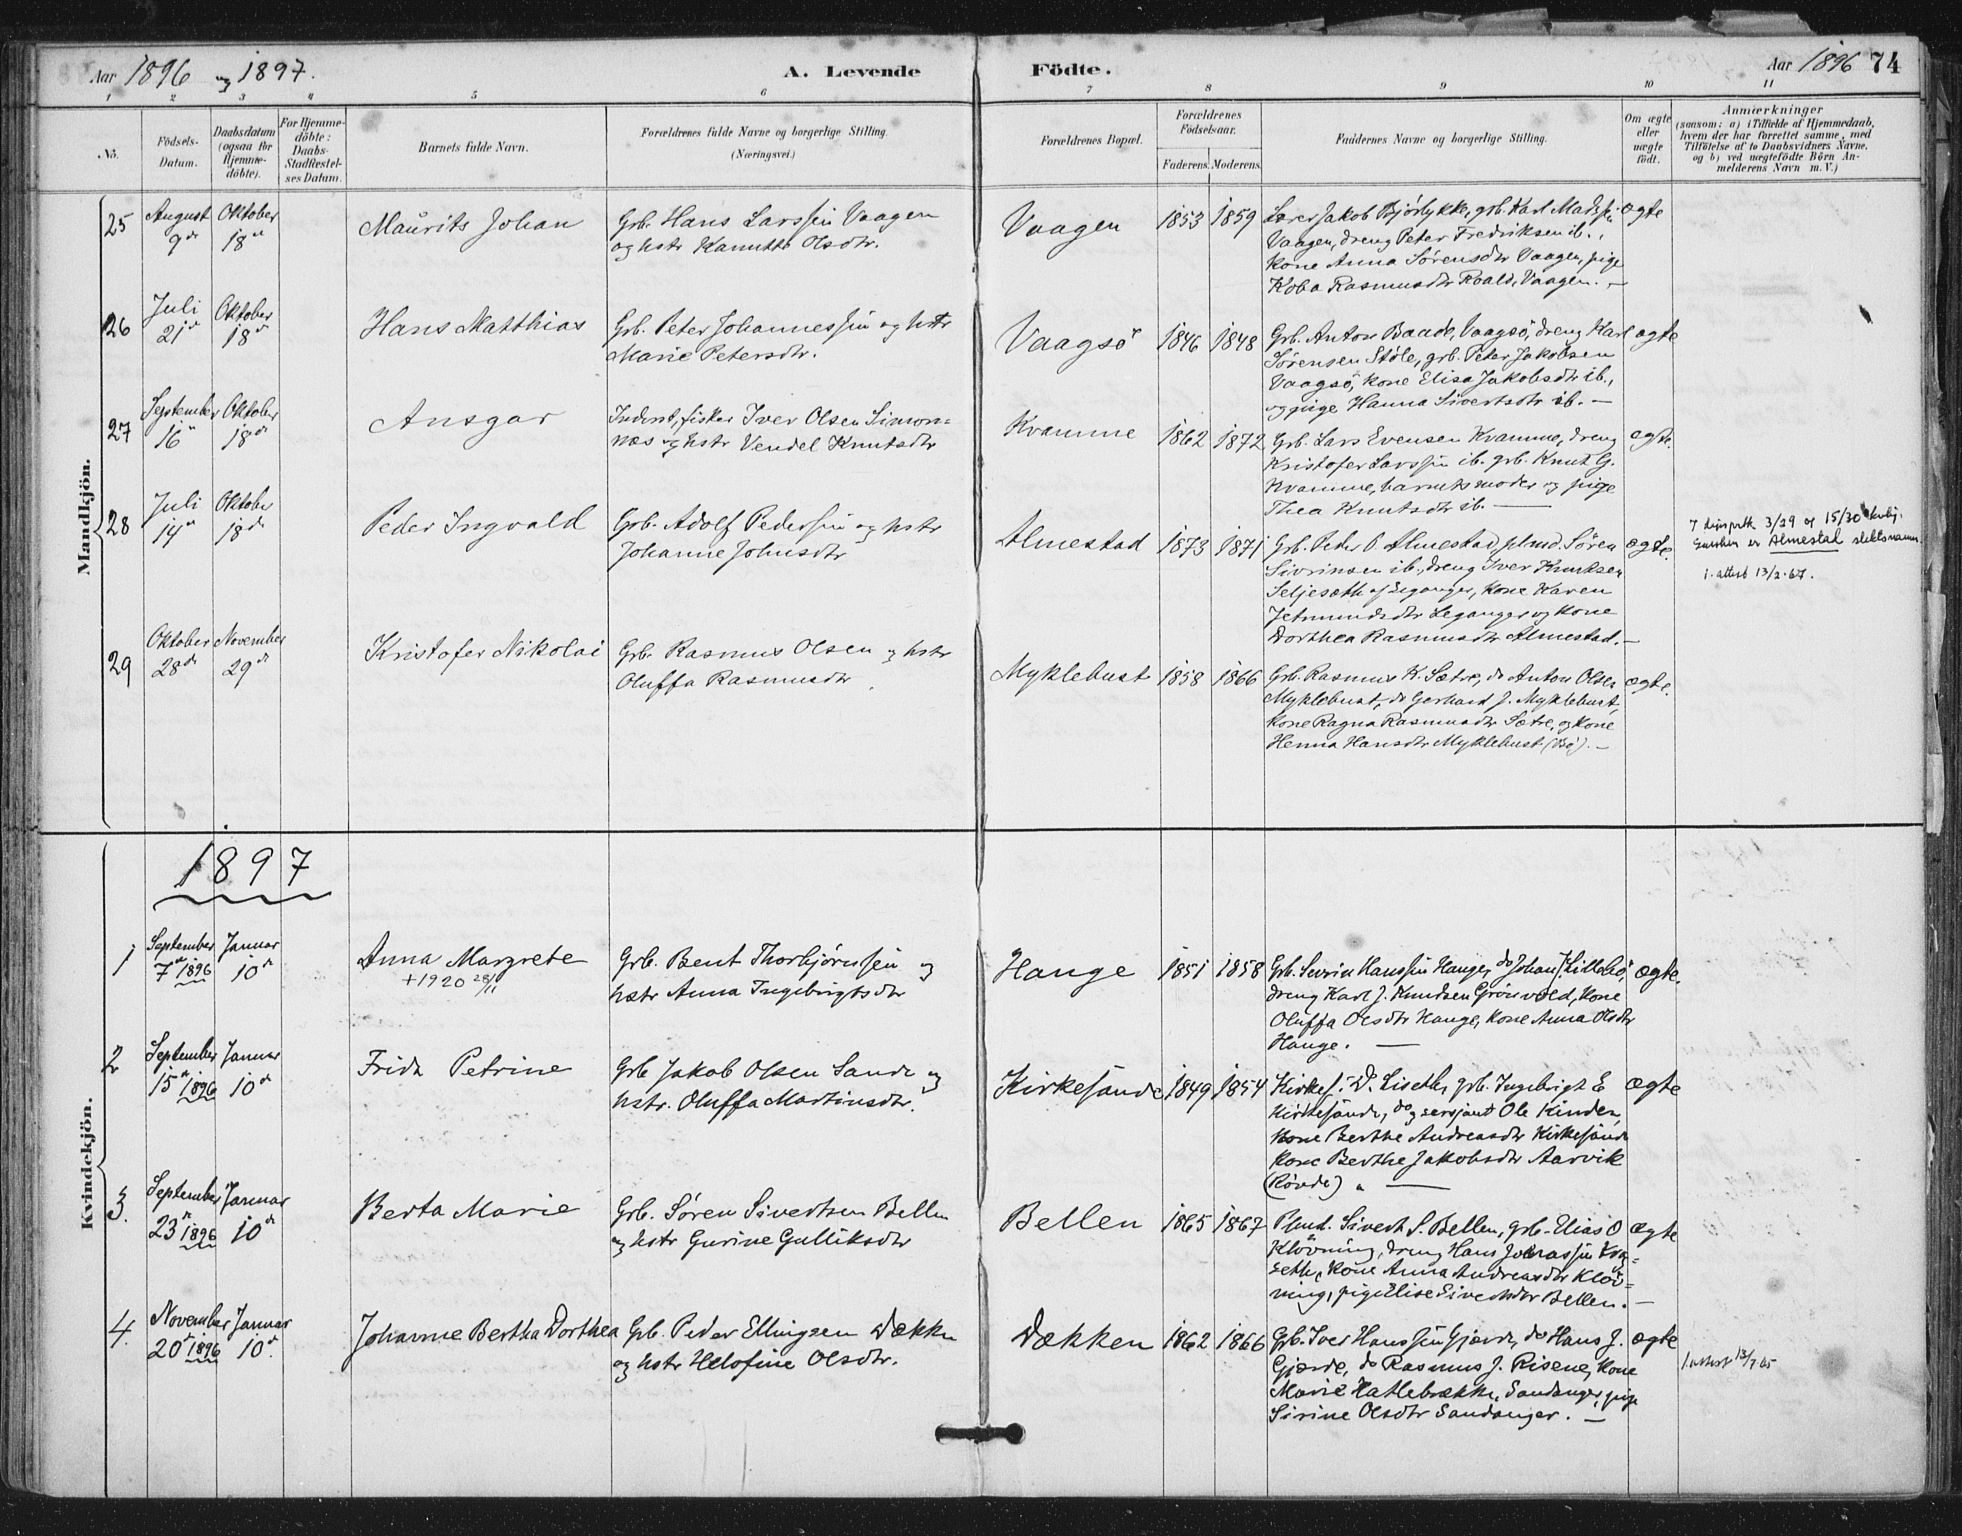 Aar 1896 og 1897.
A. Levende Födte.
Aar 1896 74
1 2 3 4 5 6 7 8 9 10 11
No.
Födsels-
Datum.
Daabsdatum
(ogsaa for
Hjemme-
döbte).
For Hjemme-
döbte:
Daabs-
Stadfæstel-
ses Datum.
Barnets fulde Navn.
Forældrenes fulde Navne og borgerlige Stilling.
(Næringsvei.)
Forældrenes Bopæl.
Forældrenes
Födselsaar.
Faderens. Moderens.
Faddernes Navne og borgerlige Stilling.
Om ægte
eller
uægte
födt.
Anmærkninger
(saasom: a) i Tilfælde af Hjemmedaab,
hvem der har forrettet samme, med
Tilföielse af to Daabsvidners Navne,
og b) ved uægtefödte Börn An-
melderens Navn m. V.)
Mandkjön.
25
August
9de
Oktober
18de
Maurits Johan
Grb. Hans Larssen Vaagen
og hstr Kanutte Olsdtr.
Vaagen
1853 1859
Lærer Jakob Bjørlykke, grb. Karl Madssen
Vaagen, dreng Peter Fredriksen ib.,
kone Anna Sørensdtr Vaagen, pige
Koba Rasmusdtr Roald, Vaagen. —
ægte
26
Juli
21de
Oktober
18de
Hans Matthias
Grb. Peter Johannessen og hstr
Marie Petersdtr.
Vaagsö
1846 1848
Grb. Anton Baade, Vaagsö, dreng Karl
Sørensen Støle, grb. Peter Jakobsen
Vaagsö, kone Elisa Jakobsdtr ib.,
og pige Hanna Sivertsdtr ib. —
ægte
27
September
16de
Oktober
18de
Ansgar
Inderst, fisker Iver Olsen Simon=
næs og hstr Vendel Knutsdtr
Kvamme
1862 1872
Grb. Lars Evensen Kvamme, dreng
Kristofer Larssen ib. grb. Knut G.
Kvamme, barnets moder og pige
Thea Knutsdtr ib. —
ægte.
28
Juli
14de
Oktober
18de
Peder Ingvald
Grb. Adolf Pederssen og hstr
Johanne Johnsdtr
Almestad
1873 1871
Grb. Peter P. Almestad, plmd. Søren
Sivrinsen ib., dreng Iver Knutsen
Seljesæth af Leganger, kone Karen
Jetmundsdtr Leganger og kone
Dorthea Rasmusdtr Almestad. —
ægte.
3/29 og 15/30
er Almestad slektsnamn.
1. attest 13/2-67.
29
Oktober
28de
November
29de
Kristofer Nikolai
Grb. Rasmus Olsen og hstr
Oluffa Rasmusdtr
Myklebust
1858 1866
Grb. Rasmus K. Sætre, do Anton Olsen
Myklebust, do Gerhard J. Myklebust,
kone Ragna Rasmusdtr Sætre, og kone
Henna Hansdtr Myklebust (Bö). —
ægte.
1897
Kvindekjön.
1
September
7de 1896
Januar
10de
Anna Margrete
+ 1920 28/11
Grb. Bent Thorbjørnsen og
hstr Anna Ingebrigtsdtr
Hauge
1851 1858
Grb. Sevrin Hanssen Hauge, do Johan J. Lillebø,
dreng Karl J. Knudsen Grönvold, kone
Oluffa Olsdtr Hauge, kone Anna Olsdtr
Hauge. —
ægte.
2
September
15de 1896
Januar
10de
Frida Petrine
Grb Jakob Olsen Sande og
hstr. Oluffa Martinsdtr.
Kirkesande
1849 1854
Kirkes. D. Liseth, grb. Ingebrigt E
Kirkesande, do og sersjant Ole Kinden,
kone Berthe Andreasdtr Kirkesande
kone Berthe Jakobsdtr Aarvik
(Rövde). —
ægte
3.
September
23de 1896
Januar
10de
Berta Marie
Grb. Søren Sivertsen Bellen
og hstr Gurine Gulliksdtr
Bellen
1865 1867
Plmd. Sivert S. Bellen, grb. Elias O
Klövning, dreng Hans Jonassen Krog=
seth, kone Anna Andreasdtr Klöv=
ning, pige Elise Sivertsdtr Bellen. —
ægte
4.
November
20de 1896
Januar
10de
Johanne Bertha Dorthea
Grb. Peder Ellingsen Dækken
og hstr Helofine Olsdtr.
Dækken
1862 1866
Grb. Iver Hanssen Gjærde, do Hans J.
Gjærde, do Rasmus J. Risene, kone
Marie Hatlebrække, Sandanger, pige
Sirine Olsdtr Sandanger. —
ægte
1. attest 13/7 65